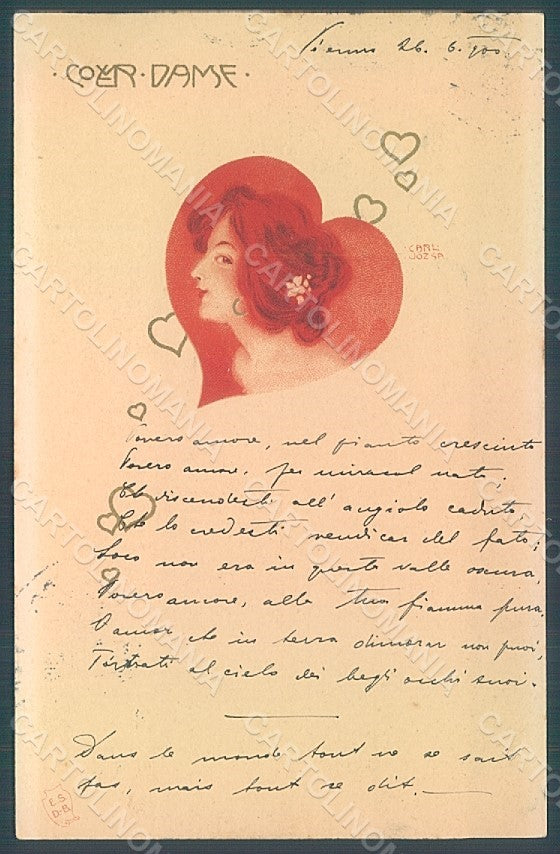 26. 6. 900
· COEUR · DAME ·
CARL
JOZSA
Povero amore, nel pianto cresciuto
Povero amore, per miracol nato;
discendesti all' angiolo caduto
lo credesti vendicar del fato;
Loco non era in questa valle oscura,
Povero amore, alla tua fiamma pura.
O amor che in terra dimorar non puoi,
Tirtrati al cielo dei begli occhi suoi.
Dans le monde tout ne se sait
pas, mais tout se dit.
E.S.
D.B.
CARTOLINOMANIA